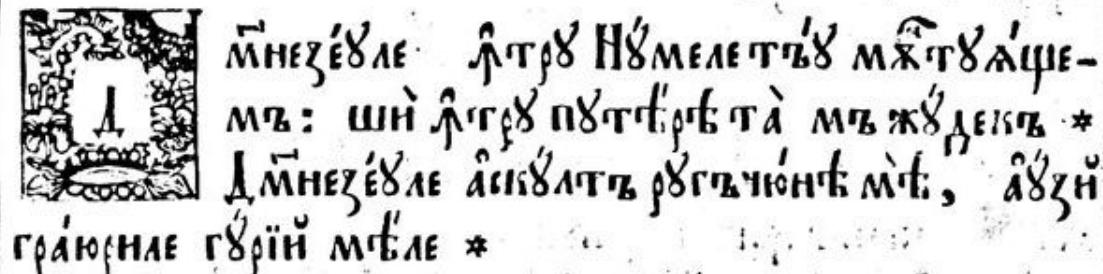 Дм҃неꙁе́ꙋле ꙟ҆трꙋ Нꙋ́меле тъ́ꙋ мѫ҃тꙋѧ́ще-
мъ: шѝ ꙟ҆трꙋ пꙋтѣ́рѣ та̀ мъ жꙋ́декъ *
Дм҃неꙁе́ꙋле а҆скꙋ́лтъ рꙋгъчю́нѣ мѣ̀, а҆ꙋ́ꙁй
гра́юриле гꙋ́рїй мѣ́ле *